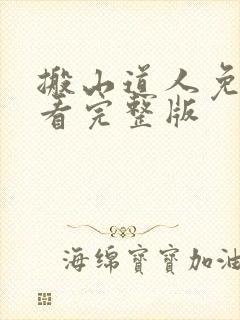 搬山道人免
看完整版
海绵寶寶加油